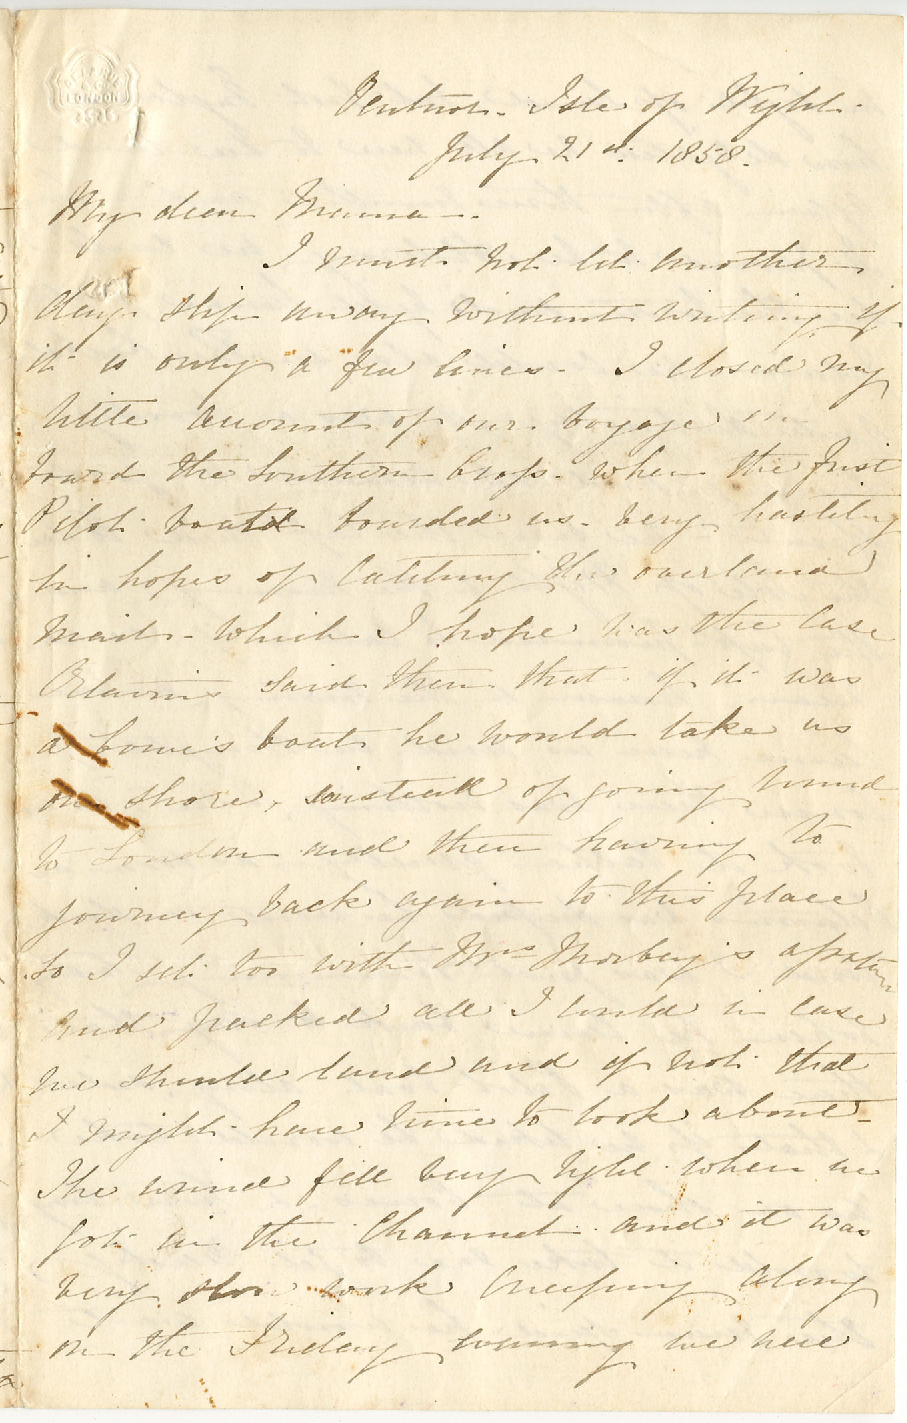 LONDON
Ventnor. Isle of Wight.
July 21st. 1858.
My dear Mama.
I must not let another
day slip away without writing if
it is only a few lines. I closed my
little account of our voyage in
board the Southern Cross. when the first
Pilot boatd boarded us. very hastily
in hopes of catching the overland
mail. which I hope was the case
said then that if it was
a Cowe's boat he would take us
one shore, insteadd of going round
to London and then having to
journey back again to this place
So I set too with Mrs
and packed all I could in case
we should land and if not that
I might have time to look about.
The wind fell very light when we
got in the Channel. and it was
very slow work creeping along
on the Friday evening we were